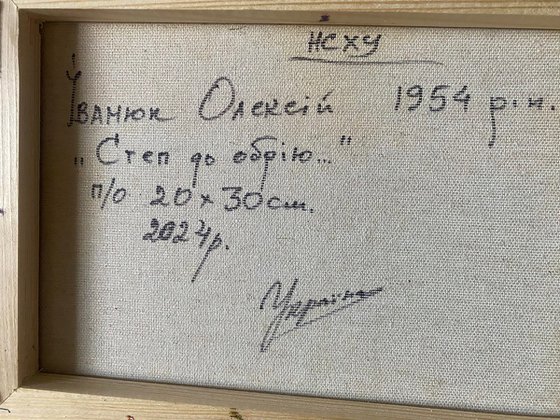 НСХУ
Іванюк Олексій 1954 р.н.
„Степ до обрію..."
п/о 20×30см.
2024р.
Україна